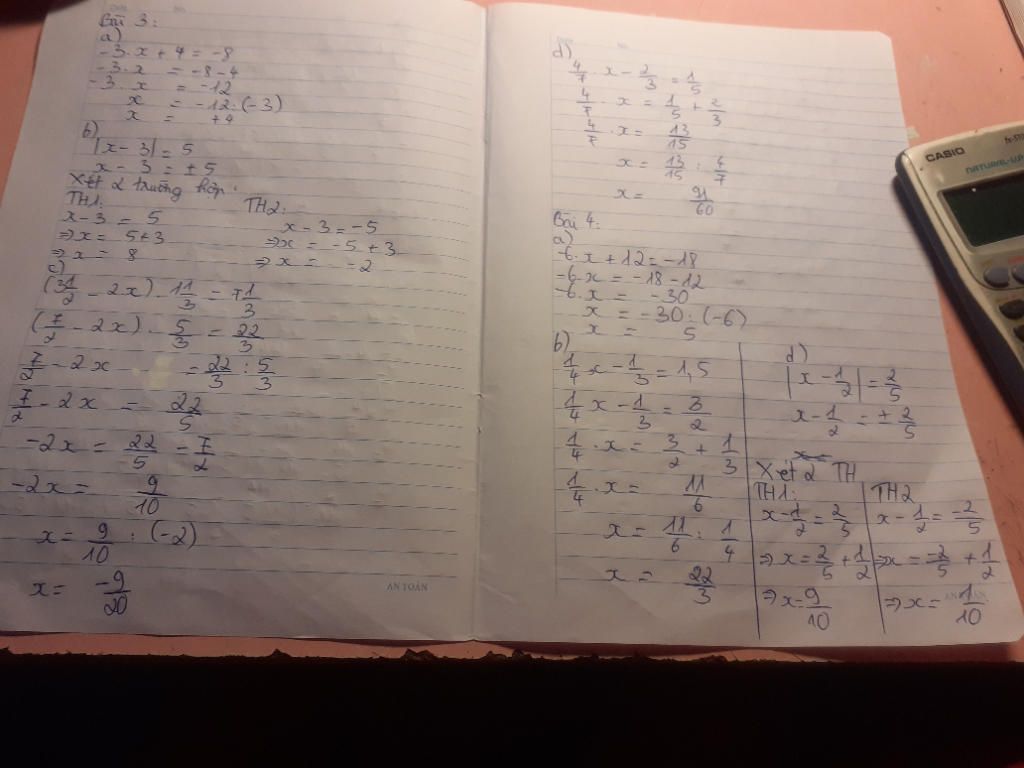 Bài 3:
a)
-3·x + 4 = -8
-3·x = -8-4
-3·x = -12
x = -12:(-3)
x = +4
b)
|x - 3| = 5
x - 3 = ± 5
Xét 2 trường hợp:
TH1: TH2:
x-3 = 5 x - 3 = -5
⇒x = 5+3 ⇒x = -5 + 3
⇒ x = 8 ⇒ x = -2
c)
(3 1/2 - 2x) · 11/3 = 7 1/3
(7/2 - 2x) · 5/3 = 22/3
7/2 - 2x = 22/3 : 5/3
7/2 - 2x = 22/5
-2x = 22/5 - 7/2
-2x = 9/10
x = 9/10 : (-2)
x = -9/20
AN TOÀN
d)
4/7 · x - 2/3 = 1/5
4/7 · x = 1/5 + 2/3
4/7 · x = 13/15
x = 13/15 : 4/7
x = 91/60
Bài 4:
a)
-6·x + 12 = -18
-6·x = -18-12
-6·x = -30
x = -30 : (-6)
x = 5
b)
1/4 x - 1/3 = 1,5
1/4 x - 1/3 = 3/2
1/4 · x = 3/2 + 1/3
1/4 · x = 11/6
x = 11/6 : 1/4
x = 22/3
d)
|x - 1/2| = 2/5
x - 1/2 = ± 2/5
Xét 2 TH
TH1: TH2
x - 1/2 = 2/5 x - 1/2 = -2/5
⇒ x = 2/5 + 1/2 ⇒x = -2/5 + 1/2
⇒ x = 9/10 ⇒ x = 1/10
CASIO
NATURAL-V.P.A.M.